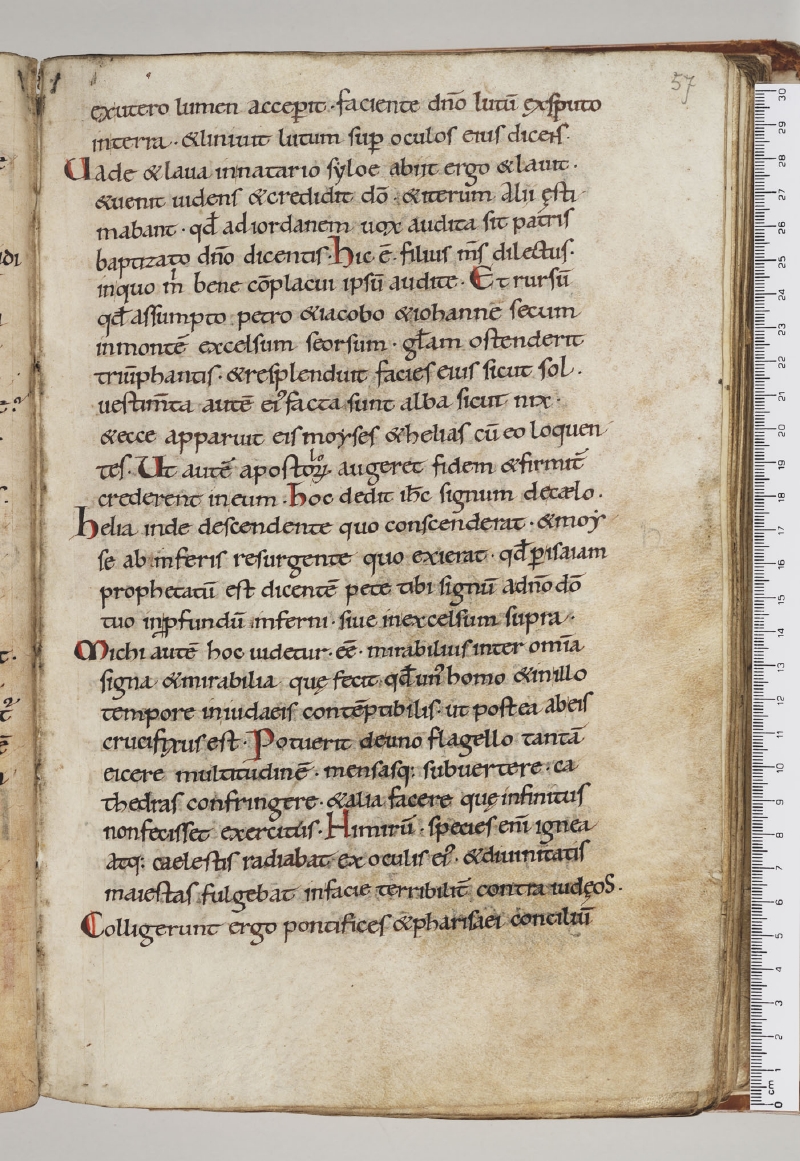 57
exutero lumen accepit · faciente dn̄o lutū exsputo
interra · &liniuit lutum sup̄ oculos eius dicens·
Uade &laua innatatorio syloe abiit ergo &lauit ·
&uenit uidens &credidit dō · &iterum Alii ęsti
mabant · qđ adiordanem uox audita sit patris
baptizato dn̄o dicentis· hic · ē · filius m̄s dilectus·
inquo m̄ bene cōplacui ipsū audite · Et rursū
qđ assumpto petro &iacobo &iohanne secum
inmontē excelsum seorsum · gl̄am ostenderit
triūphantis · &resplenduit facies eius sicut sol ·
uestim̄ta autē ei᾿ facta sunt alba sicut nix ·
&ecce apparuit eis moyses &helias cū eo loquen
tes · Ut autē apostoloꝝ augeret fidem &firmit̄
crederent ineum · hoc dedit ih̄c signum decælo ·
helia inde descendente quo conscenderat · &moy
se ab inferis resurgente quo exierat · qđ ꝑ isaiam
prophetatū est dicentē pete tibi signū adn̄o dō
tuo inꝓfundū inferni · siue inexcelsum supra ·
Michi autē hoc uidetur · eē · mirabilius inter omīa
signa &mirabilia quę fecit qđ un᾿ homo &inillo
tempore iniudaeis contēptibilis · ut postea abeis
crucifixus est · Potuerit deuno flagello tantā
eicere multitudinē · mensasq; subuertere · ca
thedras confringere · &alia facere que infinitus
nonfecisset exercitus · Himirū · species eni͞ ignea
atq; caelestis radiabat ex oculis ei᾿ · &diuinitatis
maiestas fulgebat infacie terribilit̄ contra iudęoS ·
Colligerunt ergo pontifices &pharisaei conciliū